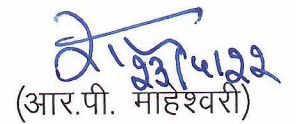 23/5/22
(आर.पी. माहेश्वरी)